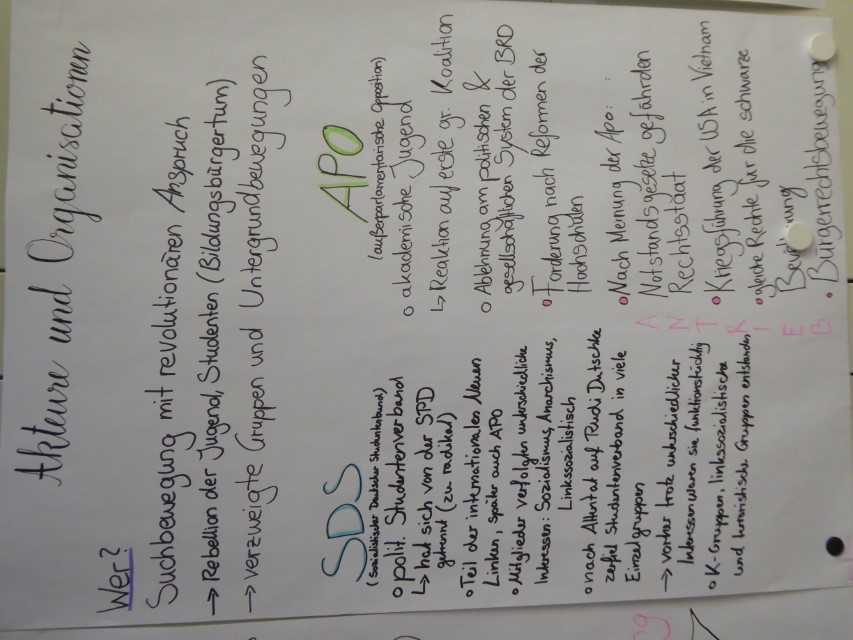 Akteure und Organisationen
Wer?
Suchbewegung mit revolutionären Anspruch
→ Rebellion der Jugend, Studenten (Bildungsbürgertum)
→ verzweigte Gruppen und Untergrundbewegungen
SDS
(Sozialistischer Deutscher Studentenbund)
polit. Studentenverband
↳ hat sich von der SPD
getrennt (zu radikal)
• Teil der internationalen Neuen
Linken, später auch APO
• Mitglieder verfolgten unterschiedliche
Interessen: Sozialismus, Anarchismus,
Linkssozialistisch
• nach Attentat auf Rudi Dutschke
zerfiel Studentenverband in viele
Einzelgruppen
→ vorher trotz unterschiedlicher
Interessen waren sie funktionstüchtig
• K-Gruppen, linkssozialistische
und terroristische Gruppen entstanden
APO
(außerparlamentarische Opposition)
• akademische Jugend
↳ Reaktion auf erste gr. Koalition
• Ablehnung am politischen &
gesellschaftlichen System der BRD
• Forderung nach Reformen der
Hochschulen
• Nach Meinung der Apo:
Notstandsgesetze gefährden
Rechtsstaat
• Kriegsführung der USA in Vietnam
• gleiche Rechte für die schwarze
• Bürgerrechtsbewegung
A
N
T
R
I
E
B